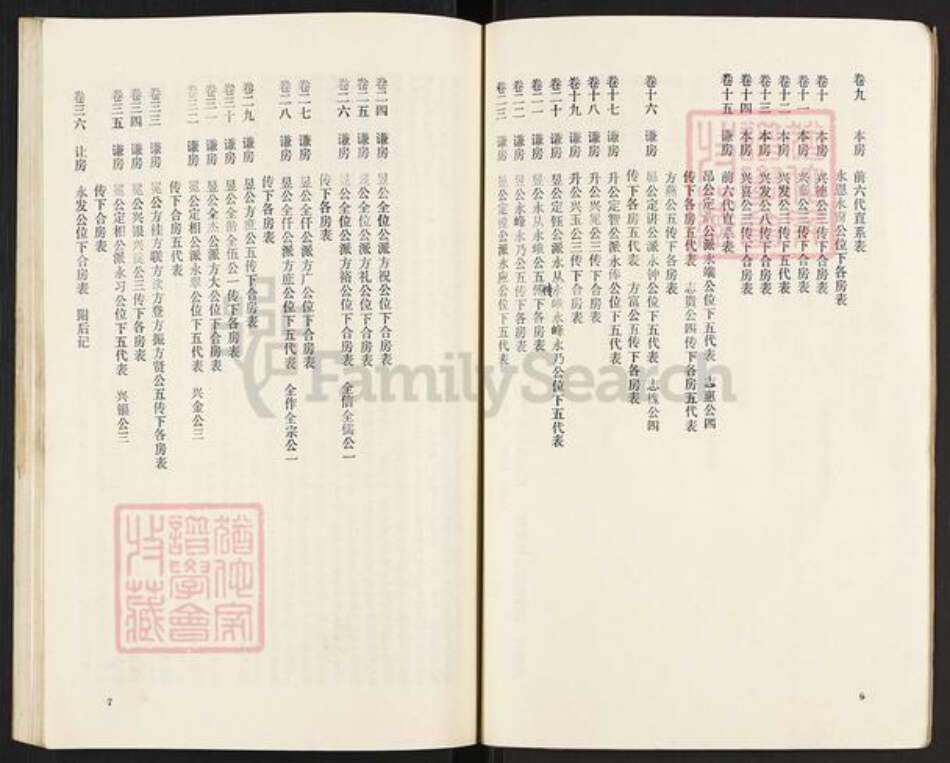 卷九 本房 前六代直系表
永恩永 公位下各房表
卷十 本房 兴德公三传下合房表
卷十一 本房 兴 公三传下合房表
卷十二 本房 兴发公三传下五代表
卷十三 本房 兴发公八传下合房表
卷十四 本房 兴喜公三传下合房表
卷十五 谦房 前六代直系表
昂公定 公派永端公位下五代表 志惠公四
传下各房五代表 志贵公四传下各房五代表
方 公五传下各房表
卷十六 谦房 公定讲公派永钟公位下五代表 志槐公四
传下各房五代表 方富公五传下各房表
卷十七 谦房 升公定智公派永俸公位下五代表
卷十八 谦房 升公兴冕公三传下合房表
卷十九 谦房 升公兴玉公三传下合房表
卷二十 谦房 昱公定钰公派永从永 永峰永乃公位下五代表
卷二一 谦房 昱公永从永 公五传下各房表
卷二二 谦房 昱公永峰永乃公五传下各房表
卷二三 谦房 公定 公派永应公位下五代表
卷二四 谦房 昱公全位公派方祝公位下合房表
卷二五 谦房 公全位公派方礼公位下合房表
卷二六 谦房 公全位公派方裕公位下合房表 全信全儒公一
传下各房表
卷二七 谦房 昱公全仟公派方广公位下合房表
卷二八 谦房 昱公全仟公派方庶公位下五代表 全作全宗公一
传下各房表
卷二九 谦房 昱公方庶公五传下合房表
卷三十 谦房 昱公全 全伍公一传下各房表
卷三一 谦房 昱公全杰公派方大公位下合房表
卷三二 谦房 冕公定相公派永翠公位下五代表 兴金公三
传下合房五代表
卷三三 谦房 冕公方桂方联方 方登方振方贤公五传下各房表
卷三四 谦房 冕公兴银兴 公三传下各房表
卷三五 谦房 冕公定相公派永习公位下五代表 兴镇公三
传下合房表
卷三六 让房 永发公位下合房表 附后记
6
7
猶他家譜學會特藏
FamilySearch